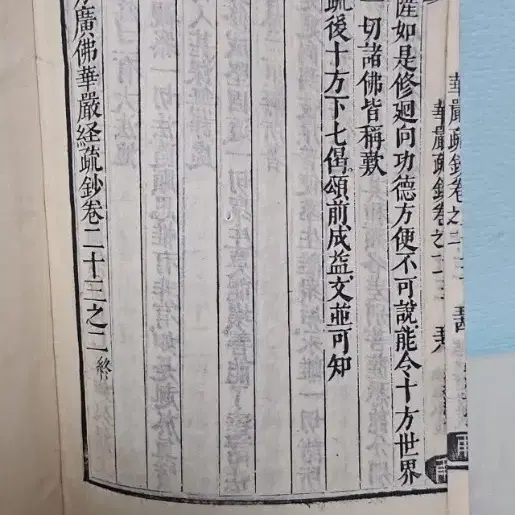 華嚴疏鈔卷之二十三
華嚴疏鈔卷之二十三
薩如是修廻向功德方便不可說能令十方世界
一切諸佛皆稱歎
疏後十方下七偈頌前成益文並可知
廣佛華嚴経疏鈔卷二十三之二 終